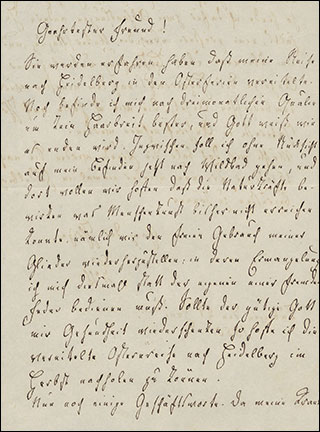 Geehrtester Freund!
Sie werden erfahren haben daß meine Reise
nach Heidelberg in den Osterferien vereitelte.
Noch befinde ich mich nach dreimonatlichen Quälen
um kein Haarbreit besser, und Gott weiß wie
es enden wird. Inzwischen soll ich ohne Rücksicht
auf mein Befinden jetzt nach Wildbad gehen, und
dort wollen wir hoffen daß die Naturkräfte be-
wirken was Menschenkunst bisher nicht erreichen
konnte nämlich mir den freien Gebrauch meiner
Glieder wiederherzustellen, in deren Ermangelung
ich mich diesmals statt der eigenen einer fremden
Feder bedienen muß. Sollte der gütige Gott
mir Gesundheit wiederschenken so hoffe ich die
vereitelte Osterreise nach Heidelberg im
Herbst nachholen zu können.
Nur noch einige Geschäftsworte. Da meine